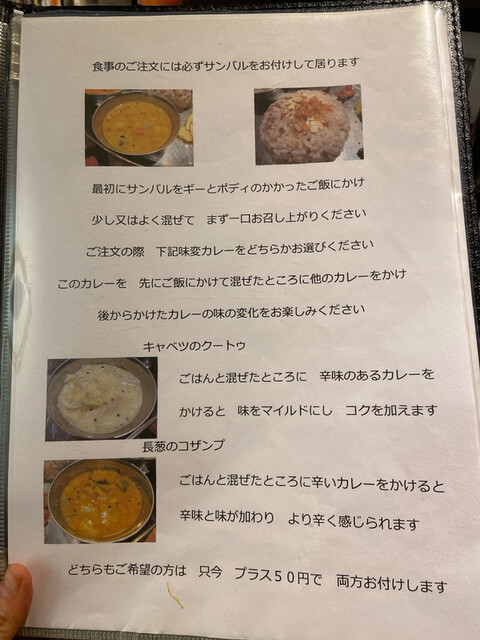 食事のご注文には必ずサンバルをお付けして居ります
最初にサンバルをギーとポディのかかったご飯にかけ
少し又はよく混ぜて　まず一口お召し上がりください
ご注文の際　下記味変カレーをどちらかお選びください
このカレーを　先にご飯にかけて混ぜたところに他のカレーをかけ
後からかけたカレーの味の変化をお楽しみください
キャベツのクートゥ
ごはんと混ぜたところに　辛味のあるカレーを
かけると　味をマイルドにし　コクを加えます
長葱のコザンプ
ごはんと混ぜたところに辛いカレーをかけると
辛味と味が加わり　より辛く感じられます
どちらもご希望の方は　只今　プラス５０円で　両方お付けします